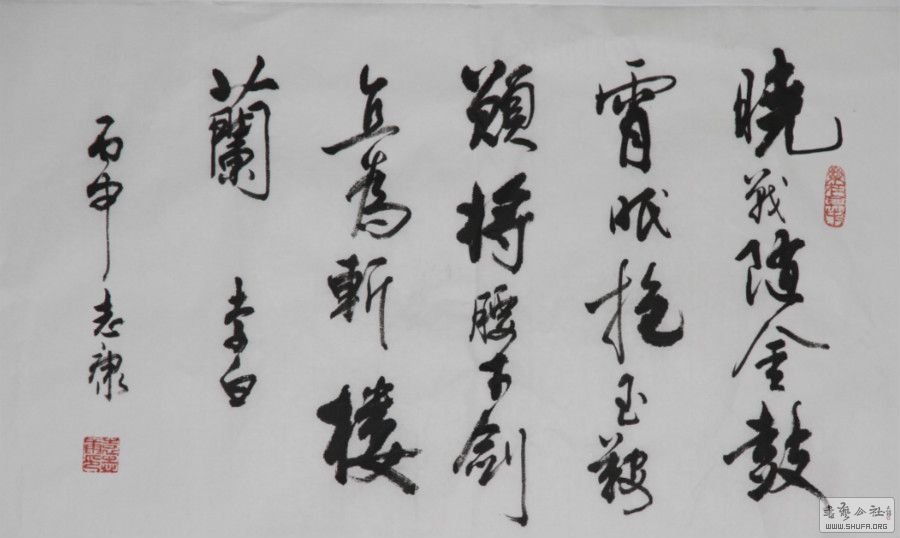 曉戰隨金鼓
宵眠抱玉鞍
願將腰下劍
直為斬樓
蘭 李白
丙申 志康
书艺公社
WWW.SHUFA.ORG